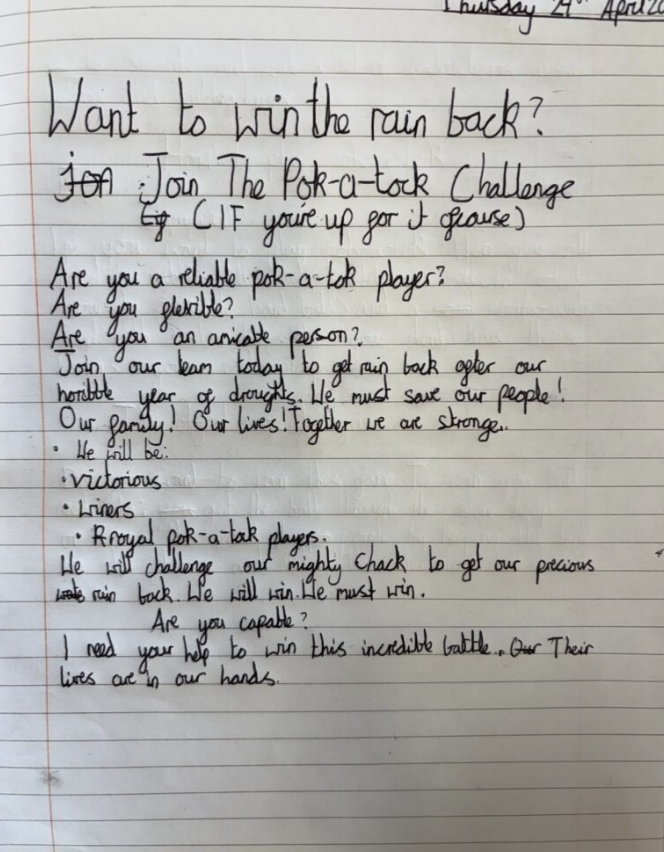 Thursday 29th April 20
Want to win the rain back?
jon Join The Pok-a-tock Challenge
Eg (IF you're up for it ofcause)
Are you a reliable pok-a-tok player?
Are you flexible?
Are you an amicable person?
Join our team today to get rain back after our
horibble year of droughts. We must save our people!
Our family! Our lives! Together we are stronge..
• We will be:
• victorious
• winers
• Rroyal pok-a-tok players.
We will challenge our mighty Chack to get our precious
rain back. We will win. We must win.
Are you capable?
I need your help to win this incredible battle.. Our Their
lives are in our hands.